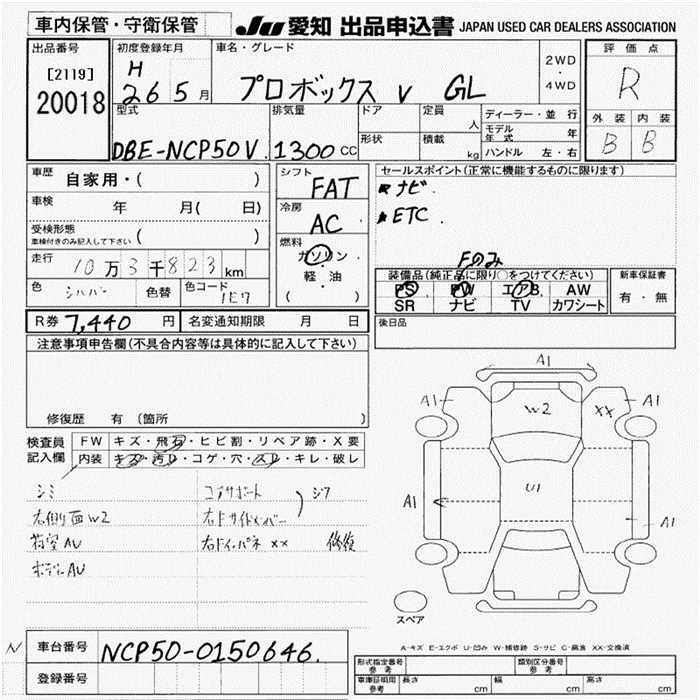 車内保管・守衛保管
JU 愛知 出品申込書 JAPAN USED CAR DEALERS ASSOCIATION
出品番号
[2119]
20018
初度登録年月
H
26 5月
車名・グレード
プロボックス V GL
2WD
・
4WD
評価点
R
外装 内装
B B
型式
DBE-NCP50V
排気量
1300CC
ドア
形状
定員
人
積載
kg
ディーラー・並行
モデル年式 年
ハンドル 左・右
車歴
自家用・( )
車検 年 月( 日)
受検形態
車検付きのみ記入して下さい ( )
走行 10万3千823km
色 シルバー 色替 色コード 1E7
シフト
FAT
冷房
AC
燃料
ガソリン
・
軽・油
( )
セールスポイント(正常に機能するものに限ります)
ナビ
ETC
Fのみ
装備品(純正品に限り○をつけてください)
PS PW エアB AW
SR ナビ TV カワシート
新車保証書
有・無
R券 7,440円 名変通知期限 月 日
後日品
注意事項申告欄(不具合内容等は具体的に記入して下さい)
修復歴 有 (箇所 )
検査員
記入欄
FW キズ・飛石・ヒビ割・リペア跡・X要
内装 キズ・汚レ・コゲ・穴・スレ・キレ・破レ
シミ
右側面W2
荷室AU
ボデーAU
コアサポート
右Fサイドメンバー
右Fインパネ XX
修復
A1
A1 W2 XX A1
A1 U1 A1
スペア
A-キズ E-エクボ U-凹み W-補修跡 S-サビ C-腐食 XX-交換済
N
車台番号 NCP50-0150646.
登録番号
形式指定番号
参考
類別区分番号
参考
車庫証明用
参考
長さ cm 幅 cm 高さ cm